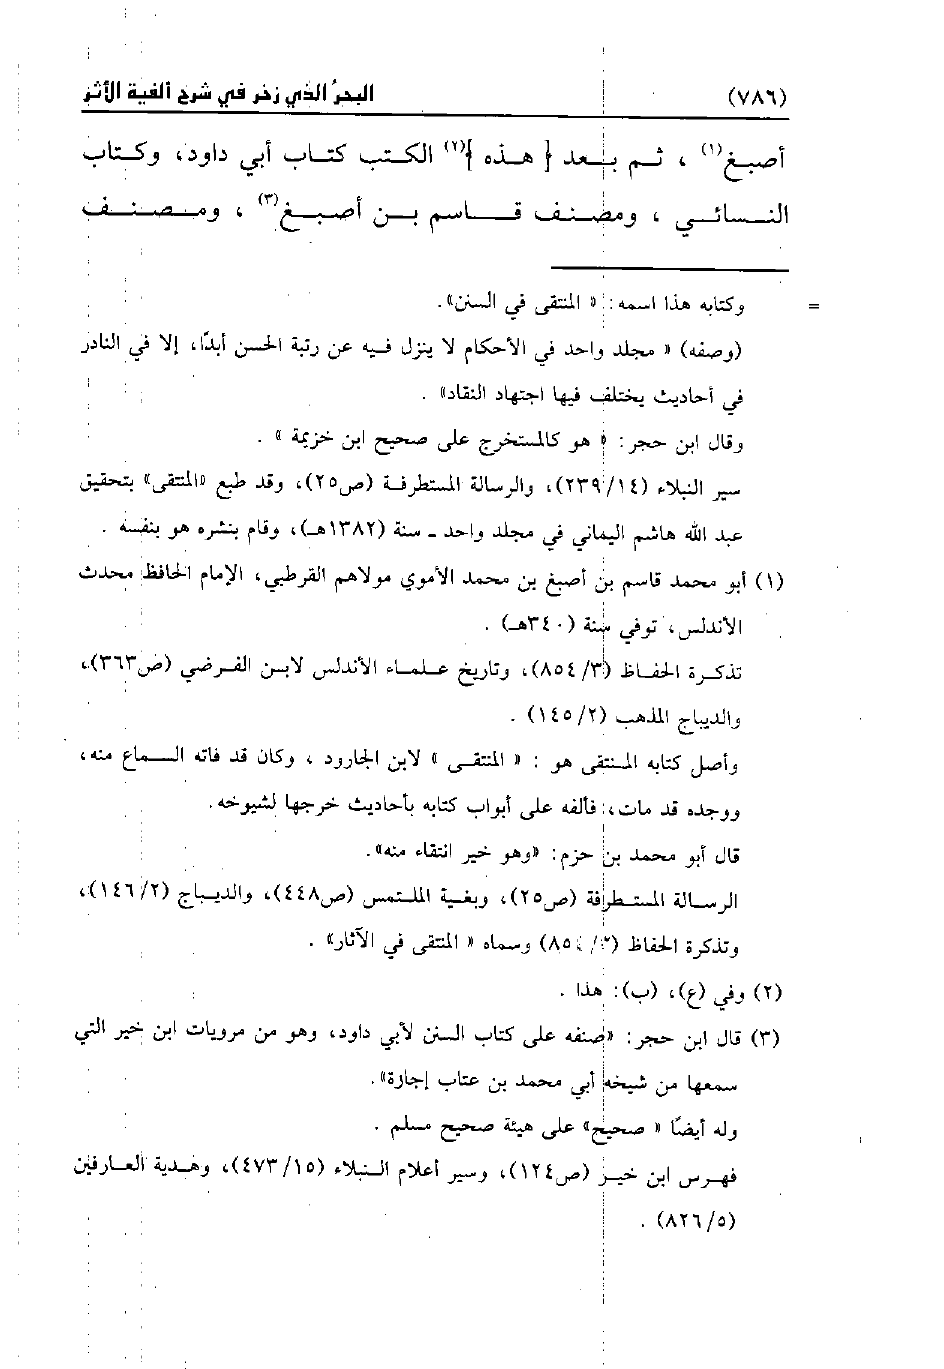 (٧٨٦) البحرُ الذي زخر في شرح ألفية الأثرْ
أصبغ(١) ، ثم بعد [ هذه ](٢) الكتب كتاب أبي داود، وكتاب
النسائي ، ومصنف قاسم بن أصبغ(٣) ، ومصنف
= وكتابه هذا اسمه: « المنتقى في السنن».
(وصفه) « مجلد واحد في الأحكام لا ينزل فيه عن رتبة الحسن أبدًا، إلا في النادر
في أحاديث يختلف فيها اجتهاد النقاد» .
وقال ابن حجر: « هو كالمستخرج على صحيح ابن خزيمة » .
سير النبلاء (٢٣٩/١٤)، والرسالة المستطرفة (ص٢٥)، وقد طبع «المنتقى» بتحقيق
عبد الله هاشم اليماني في مجلد واحد ـ سنة (١٣٨٢هـ)، وقام بنشره هو بنفسه .
(١) أبو محمد قاسم بن أصبغ بن محمد الأموي مولاهم القرطبي، الإمام الحافظ محدث
الأندلس، توفي سنة (٣٤٠هـ) .
تذكرة الحفاظ (٨٥٤/٣)، وتاريخ علماء الأندلس لابن الفرضي (ص٣٦٣)،
والديباج المذهب (١٤٥/٢) .
وأصل كتابه المنتقى هو : « المنتقى » لابن الجارود ، وكان قد فاته السماع منه،
ووجده قد مات، فألفه على أبواب كتابه بأحاديث خرجها لشيوخه.
قال أبو محمد بن حزم: «وهو خير انتقاء منه».
الرسالة المستطرفة (ص٢٥)، وبغية الملتمس (ص٤٤٨)، والديباج (١٤٦/٢)،
وتذكرة الحفاظ وسماه « المنتقى في الآثار» .
(٢) وفي (ع)، (ب): هذا .
(٣) قال ابن حجر: «صنفه على كتاب السنن لأبي داود، وهو من مرويات ابن خير التي
سمعها من شيخه أبي محمد بن عتاب إجازة».
وله أيضًا « صحيح» على هيئة صحيح مسلم .
فهرس ابن خير (ص١٢٤)، وسير أعلام النبلاء (٤٧٣/١٥)، وهدية العارفين
(٨٢٦/٥) .